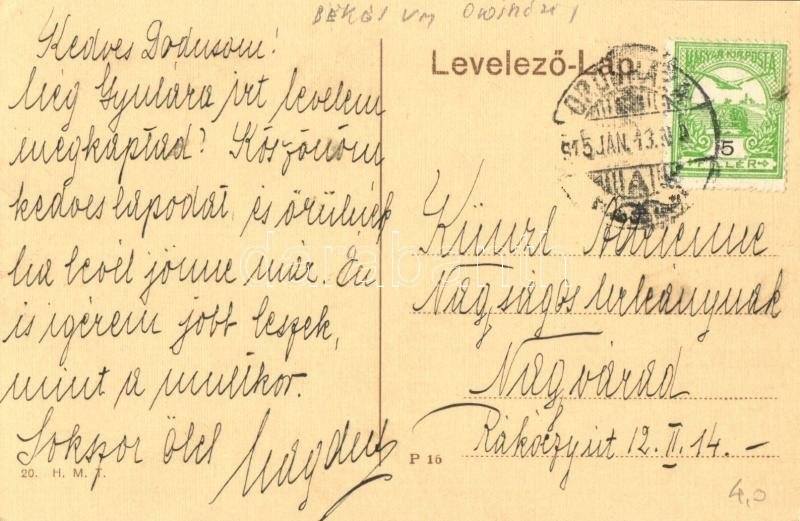 BÉKÉS VM
Kedves Dodusom!
Még Gyulára irt levelem
megkaptad? Köszönöm
kedves lapodat és örülnék
ha levél jönne már. Én
is igérem jobb leszek,
mint a multkor.
Sokszor ölel
20. H. M. T.
Levelező-Lap
MAGYAR KIR. POSTA
5
FILLÉR
OROSHÁZA
915 JAN. 13.
A
Künzl Adrienne
Nagyságos urleánynak
Nagyvárad
Rákóczy út 12. II. 14. –
P 16
4,0
darabanth